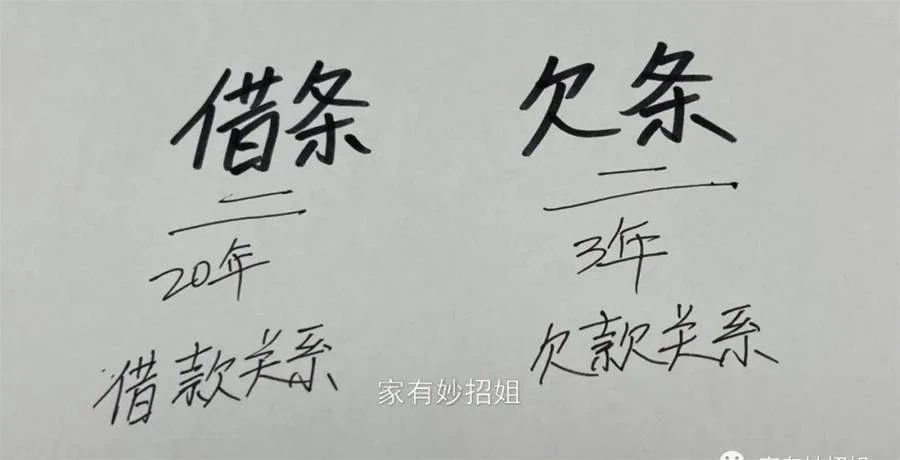 借条 欠条
20年 3年
借款关系 欠款关系
家有妙招姐
家有妙招姐